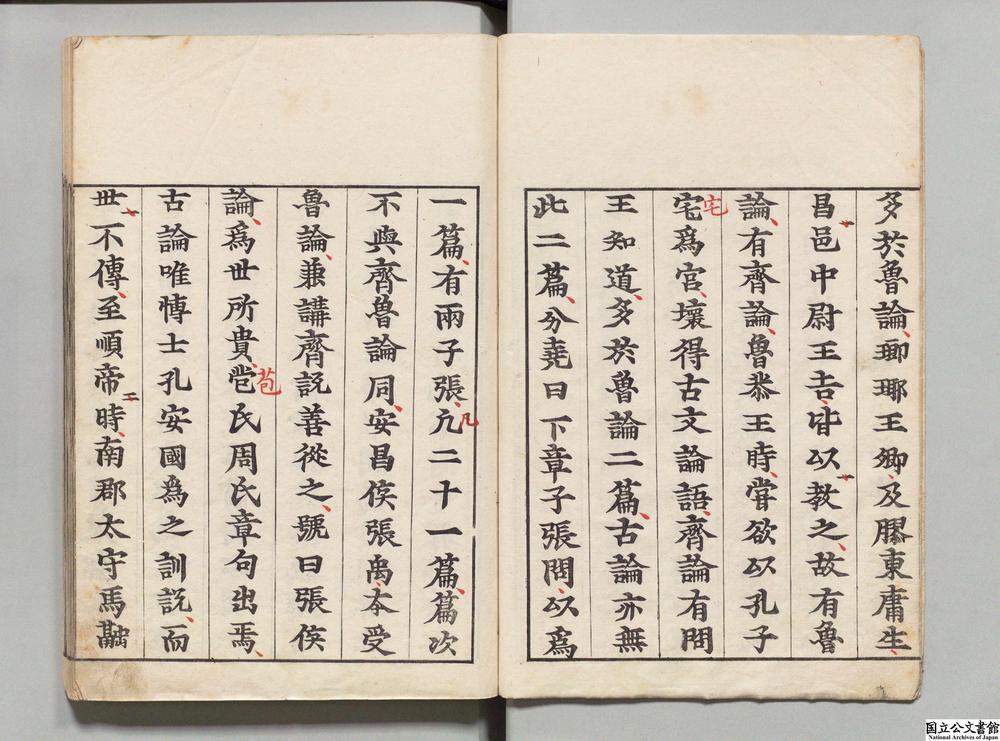 多於魯論、瑯瑘王卿、及膠東庸生、
昌邑中尉王吉、皆以教之、故有魯
論、有齊論、魯恭王時、嘗欲以孔子
宅爲宮、壞得古文論語、齊論有問
宅
王知道、多於魯論二篇、古論亦無
此二篇、分堯曰下章子張問、以爲
一篇、有兩子張、凢二十一篇、篇次
凡
不與齊魯論同、安昌侯張禹、本受
魯論、兼講齊説善從之、號曰張侯
論、爲世所貴、苞氏周氏章句出焉、
苞
古論唯博士孔安國爲之訓説、而
世不傳、至順帝時、南郡太守馬融
国立公文書館
National Archives of Japan